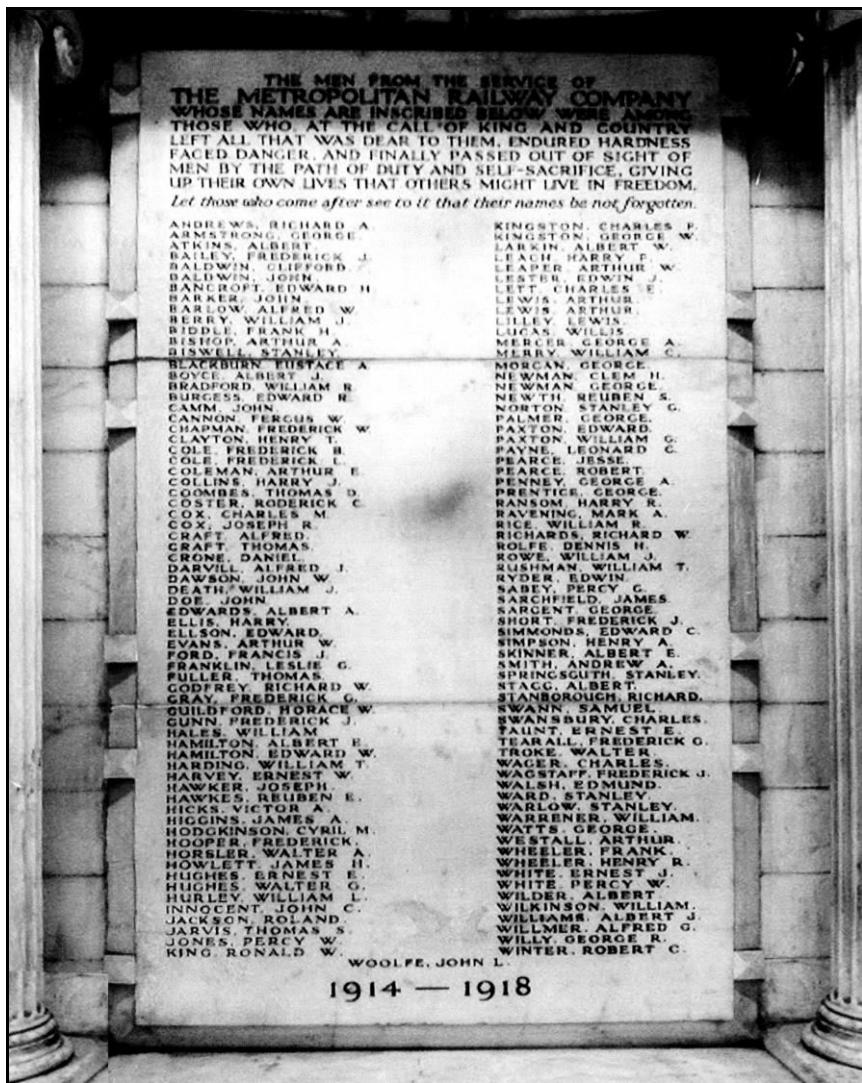 THE MEN FROM THE SERVICE OF
THE METROPOLITAN RAILWAY COMPANY
WHOSE NAMES ARE INSCRIBED BELOW WERE AMONG
THOSE WHO, AT THE CALL OF KING AND COUNTRY
LEFT ALL THAT WAS DEAR TO THEM, ENDURED HARDNESS
FACED DANGER, AND FINALLY PASSED OUT OF SIGHT OF
MEN BY THE PATH OF DUTY AND SELF-SACRIFICE, GIVING
UP THEIR OWN LIVES THAT OTHERS MIGHT LIVE IN FREEDOM.
Let those who come after see to it that their names be not forgotten.
ANDREWS, RICHARD A.
ARMSTRONG, GEORGE.
ATKINS, ALBERT.
BAILEY, FREDERICK J.
BALDWIN, CLIFFORD.
BALDWIN, JOHN.
BANCROFT, EDWARD H.
BARKER, JOHN.
BARLOW, ALFRED W.
BERRY, WILLIAM J.
BIDDLE, FRANK H.
BISHOP, ARTHUR A.
BISWELL, STANLEY.
BLACKBURN, EUSTACE A.
BOYCE, ALBERT J.
BRADFORD, WILLIAM R.
BURGESS, EDWARD R.
CAMM, JOHN.
CANNON, FERGUS W.
CHAPMAN, FREDERICK W.
CLAYTON, HENRY T.
COLE, FREDERICK B.
COLE, FREDERICK L.
COLEMAN, ARTHUR E.
COLLINS, HARRY J.
COOMBES, THOMAS D.
COSTER, RODERICK C.
COX, CHARLES M.
COX, JOSEPH R.
CRAFT, ALFRED.
CRAFT, THOMAS.
CRONE, DANIEL.
DARVILL, ALFRED J.
DAWSON, JOHN W.
DEATH, WILLIAM J.
DOE, JOHN.
EDWARDS, ALBERT A.
ELLIS, HARRY.
ELLSON, EDWARD.
EVANS, ARTHUR W.
FORD, FRANCIS J.
FRANKLIN, LESLIE G.
FULLER, THOMAS.
GODFREY, RICHARD W.
GRAY, FREDERICK G.
GUILDFORD, HORACE W.
GUNN, FREDERICK J.
HALES, WILLIAM
HAMILTON, ALBERT E.
HAMILTON, EDWARD W.
HARDING, WILLIAM T.
HARVEY, ERNEST W.
HAWKER, JOSEPH.
HAWKES, REUBEN E.
HICKS, VICTOR A.
HIGGINS, JAMES A.
HODGKINSON, CYRIL M.
HOOPER, FREDERICK.
HORSLER, WALTER A.
HOWLETT, JAMES H.
HUGHES, ERNEST E.
HUGHES, WALTER G.
HURLEY, WILLIAM L.
INNOCENT, JOHN C.
JACKSON, ROLAND.
JARVIS, THOMAS S.
JONES, PERCY W.
KING, RONALD W.
KINGSTON, CHARLES F.
KINGSTON, GEORGE W.
LARKIN, ALBERT W.
LEACH, HARRY F.
LEAPER, ARTHUR W.
LESTER, EDWIN J.
LETT, CHARLES E.
LEWIS, ARTHUR.
LEWIS, ARTHUR.
LILLEY, LEWIS.
LUCAS, WILLIS.
MERCER, GEORGE A.
MERRY, WILLIAM C.
MORGAN, GEORGE.
NEWMAN, CLEM H.
NEWMAN, GEORGE.
NEWTH, REUBEN S.
NORTON, STANLEY G.
PALMER, GEORGE.
PAXTON, EDWARD.
PAXTON, WILLIAM G.
PAYNE, LEONARD C.
PEARCE, JESSE.
PEARCE, ROBERT.
PENNEY, GEORGE A.
PRENTICE, GEORGE.
RANSOM, HARRY R.
RAVENING, MARK A.
RICE, WILLIAM R.
RICHARDS, RICHARD W.
ROLFE, DENNIS H.
ROWE, WILLIAM J.
RUSHMAN, WILLIAM T.
RYDER, EDWIN.
SABEY, PERCY G.
SARCHFIELD, JAMES.
SARGENT, GEORGE.
SHORT, FREDERICK J.
SIMMONDS, EDWARD C.
SIMPSON, HENRY A.
SKINNER, ALBERT E.
SMITH, ANDREW A.
SPRINGSGUTH, STANLEY.
STAGG, ALBERT.
STANBOROUGH, RICHARD.
SWANN, SAMUEL.
SWANSBURY, CHARLES.
TAUNT, ERNEST E.
TEARALL, FREDERICK G.
TROKE, WALTER.
WAGER, CHARLES.
WAGSTAFF, FREDERICK J.
WALSH, EDMUND.
WARD, STANLEY.
WARLOW, STANLEY.
WARRENER, WILLIAM.
WATTS, GEORGE.
WESTALL, ARTHUR.
WHEELER, FRANK.
WHEELER, HENRY R.
WHITE, ERNEST J.
WHITE, PERCY W.
WILDER, ALBERT
WILKINSON, WILLIAM.
WILLIAMS, ALBERT J.
WILLMER, ALFRED G.
WILLY, GEORGE R.
WINTER, ROBERT C.
WOOLFE, JOHN L.
1914 — 1918